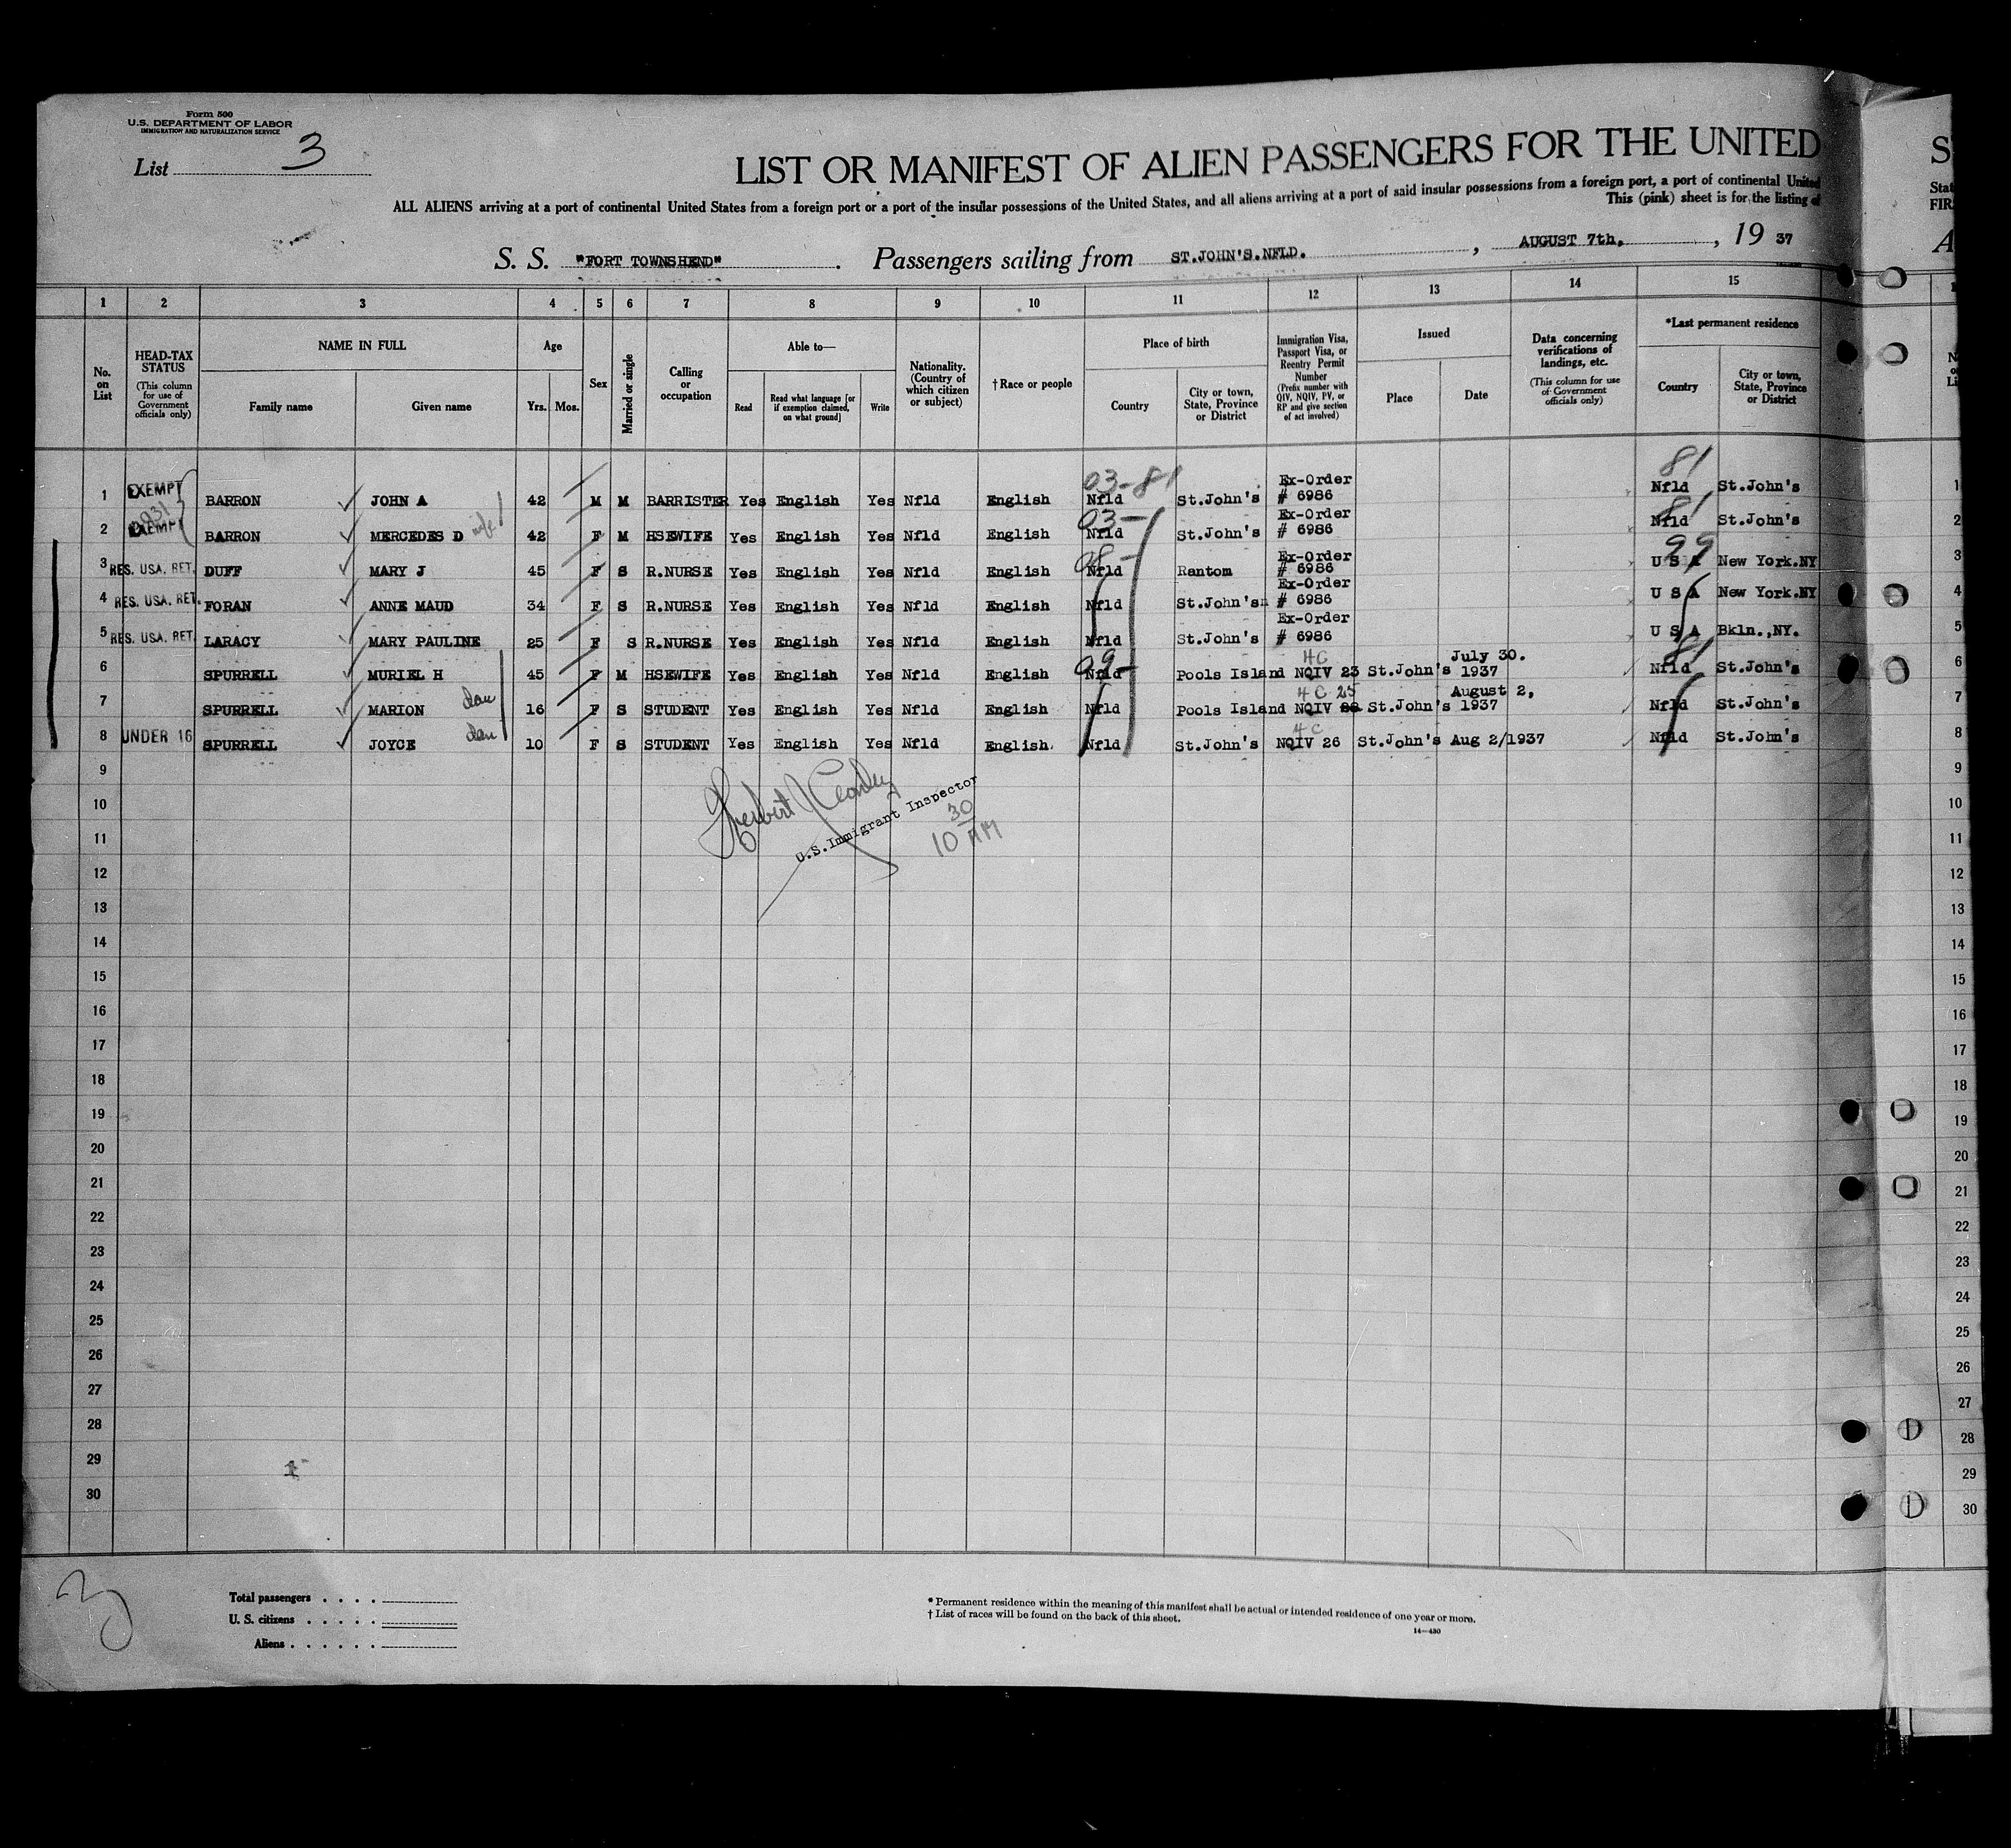 Form 500
U.S. DEPARTMENT OF LABOR
IMMIGRATION AND NATURALIZATION SERVICE
List 3
LIST OR MANIFEST OF ALIEN PASSENGERS FOR THE UNITED
S
ALL ALIENS arriving at a port of continental United States from a foreign port or a port of the insular possessions of the United States, and all aliens arriving at a port of said insular possessions from a foreign port, a port of continental United
Stat
This (pink) sheet is for the listing of
FIR
S. S. "FORT TOWNSHEND". Passengers sailing from ST.JOHN'S.NFLD. , AUGUST 7th. , 19 37
A
1 2 3 4 5 6 7 8 9 10 11 12 13 14 15
No. on List
HEAD-TAX STATUS
(This column for use of Government officials only)
NAME IN FULL
Family name Given name
Age
Yrs. Mos.
Sex
Married or single
Calling or occupation
Able to—
Read
Read what language [or if exemption claimed, on what ground]
Write
Nationality. (Country of which citizen or subject)
†Race or people
Place of birth
Country
City or town, State, Province or District
Immigration Visa, Passport Visa, or Reentry Permit Number
(Prefix number with QIV, NQIV, PV, or RP and give section of act involved)
Issued
Place Date
Data concerning verifications of landings, etc.
(This column for use of Government officials only)
*Last permanent residence
Country
City or town, State, Province or District
03-81 81
1 EXEMPT BARRON JOHN A 42 M M BARRISTER Yes English Yes Nfld English Nfld St.John's Ex-Order # 6986 Nfld St.John's 1
03- 81
2 EXEMPT BARRON MERCEDES D wife 42 F M HSEWIFE Yes English Yes Nfld English Nfld St.John's Ex-Order # 6986 Nfld St.John's 2
08- 99
3 RES. USA. RET. DUFF MARY J 45 F S R.NURSE Yes English Yes Nfld English Nfld Rantom Ex-Order # 6986 U S A New York.NY 3
4 RES. USA. RET. FORAN ANNE MAUD 34 F S R.NURSE Yes English Yes Nfld English Nfld St.John's Ex-Order # 6986 U S A New York.NY 4
5 RES. USA. RET. LARACY MARY PAULINE 25 F S R.NURSE Yes English Yes Nfld English Nfld St.John's Ex-Order # 6986 U S A Bkln.,NY. 5
09- 4C 81
6 SPURRELL MURIEL H 45 F M HSEWIFE Yes English Yes Nfld English Nfld Pools Island NQIV 23 St.John's July 30. 1937 Nfld St.John's 6
4C 25
7 SPURRELL MARION dau 16 F S STUDENT Yes English Yes Nfld English Nfld Pools Island NQIV St.John's August 2, 1937 Nfld St.John's 7
4C
8 UNDER 16 SPURRELL JOYCE dau 10 F S STUDENT Yes English Yes Nfld English. Nfld St.John's NQIV 26 St.John's Aug 2/1937 Nfld St.John's 8
9 9
10 10
11 11
Herbert J
U.S.Immigrant Inspector
10 30 AM
12 12
13 13
14 14
15 15
16 16
17 17
18 18
19 19
20 20
21 21
22 22
23 23
24 24
25 25
26 26
27 27
28 28
29 29
30 30
3
Total passengers . . . .
U. S. citizens . . . . .
Aliens . . . . . .
* Permanent residence within the meaning of this manifest shall be actual or intended residence of one year or more.
† List of races will be found on the back of this sheet.
14—430